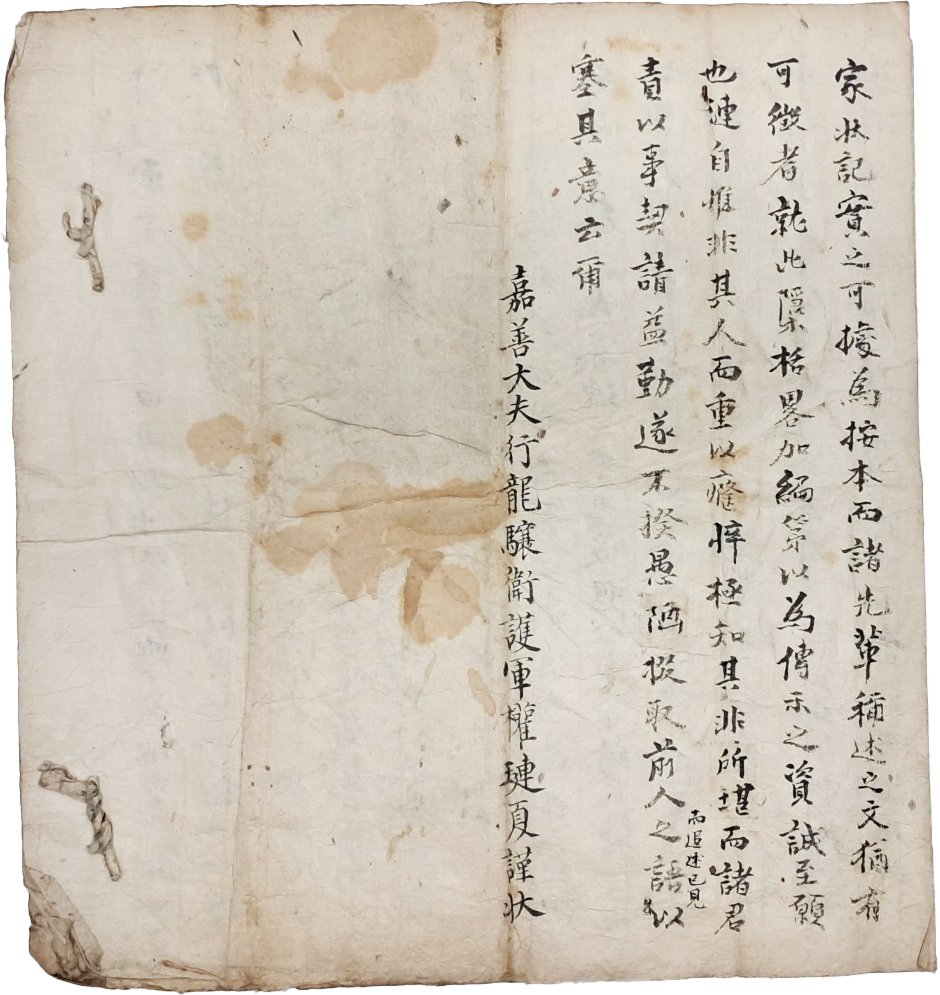 家狀記實之可據為按本而諸先輩稱述之文猶有
可徵者就此櫽栝畧加編第以為傳示之資誠至願
也漣自惟非其人而重以癃悴極知其非所堪而諸君
責以事契請益勤遂不揆愚陋掇取前人之語以
而追述已見
塞其意云爾
嘉善大夫行龍驤衛護軍權璉夏謹狀